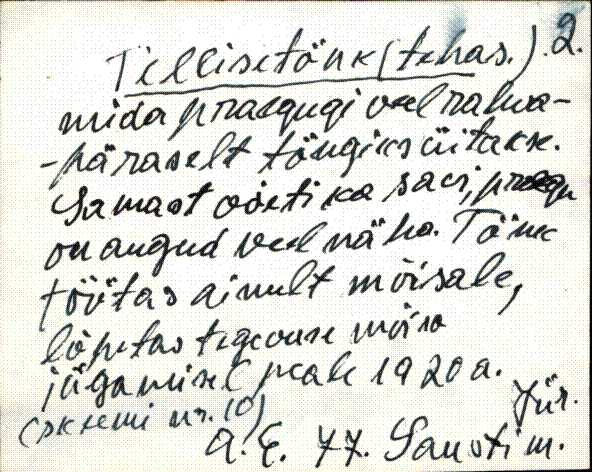 Tellisetönk (tehas.) 2.
mida praegugi veel rahva-
-päraselt töngiks üitakse.
Samast võeti ka savi, praegu
on augud veel näha. Tönk
töötas ainult mõisale,
lõpetas tegevuse mõisa
jägamisel peale 1920 a.
(skeemi nr. 10) Jür.
A. E. 77. Sausti m.